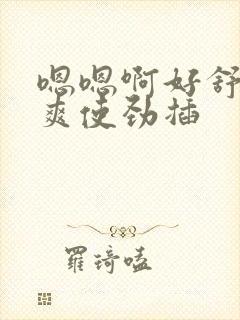 嗯嗯啊好舒
爽使劲插
羅琦嗑